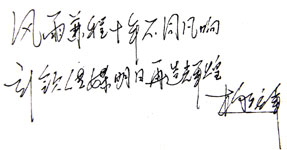 风雨兼程十年不同凡响
传媒明日再造辉煌